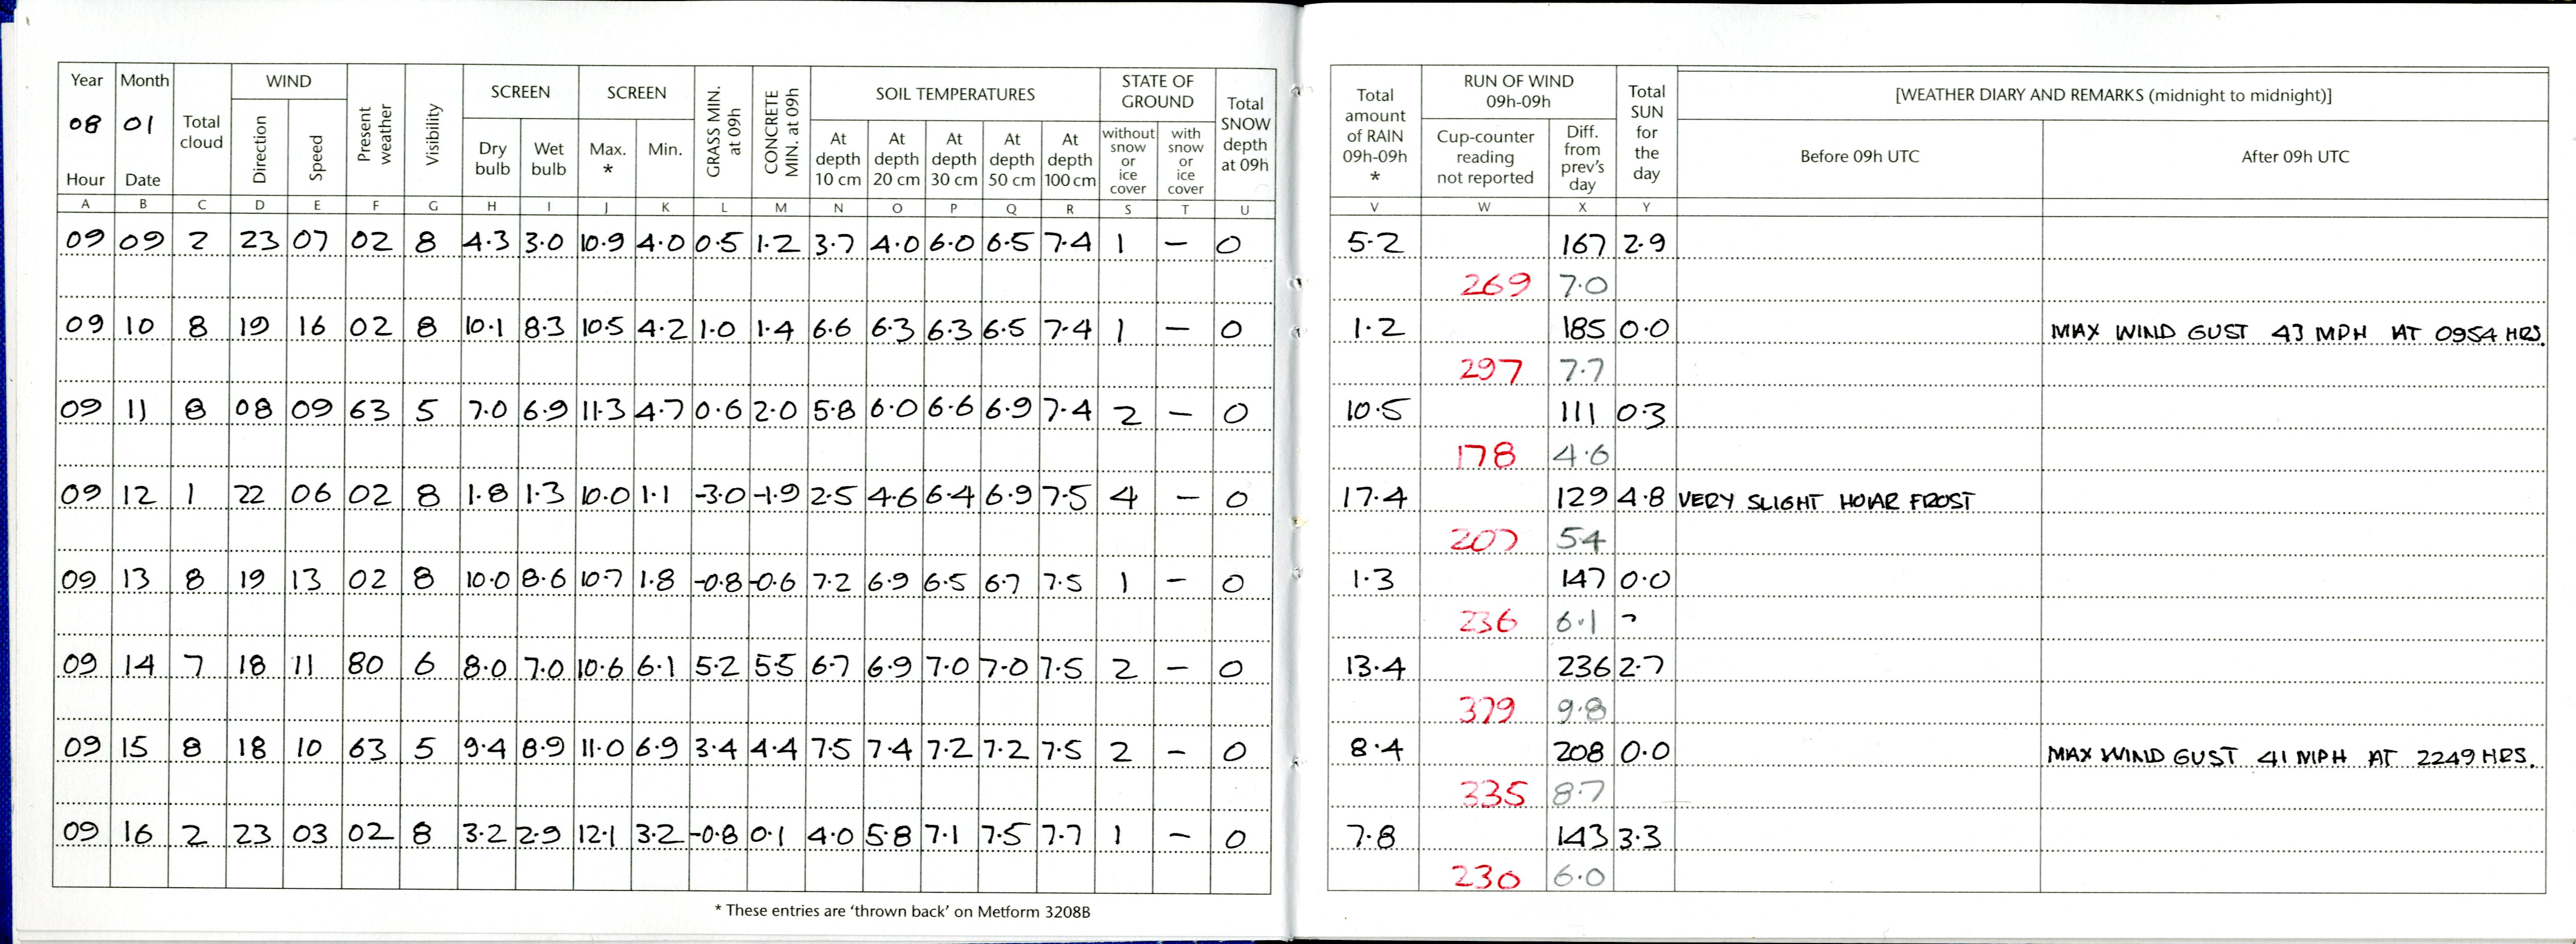 Year Month WIND SCREEN SCREEN SOIL TEMPERATURES STATE OF GROUND
08 01 Total cloud Direction Speed Present weather Visibility Dry bulb Wet bulb Max. * Min. GRASS MIN. at 09h CONCRETE MIN. at 09h At depth 10 cm At depth 20 cm At depth 30 cm At depth 50 cm At depth 100 cm without snow or ice cover with snow or ice cover Total SNOW depth at 09h
Hour Date
A B C D E F G H I J K L M N O P Q R S T U
09 09 2 23 07 02 8 4.3 3.0 10.9 4.0 0.5 1.2 3.7 4.0 6.0 6.5 7.4 1 – 0
09 10 8 19 16 02 8 10.1 8.3 10.5 4.2 1.0 1.4 6.6 6.3 6.3 6.5 7.4 1 – 0
09 11 8 08 09 63 5 7.0 6.9 11.3 4.7 0.6 2.0 5.8 6.0 6.6 6.9 7.4 2 – 0
09 12 1 22 06 02 8 1.8 1.3 10.0 1.1 -3.0 -1.9 2.5 4.6 6.4 6.9 7.5 4 – 0
09 13 8 19 13 02 8 10.0 8.6 10.7 1.8 -0.8 -0.6 7.2 6.9 6.5 6.7 7.5 1 – 0
09 14 7 18 11 80 6 8.0 7.0 10.6 6.1 5.2 5.5 6.7 6.9 7.0 7.0 7.5 2 – 0
09 15 8 18 10 63 5 9.4 8.9 11.0 6.9 3.4 4.4 7.5 7.4 7.2 7.2 7.5 2 – 0
09 16 2 23 03 02 8 3.2 2.9 12.1 3.2 -0.8 0.1 4.0 5.8 7.1 7.5 7.7 1 – 0
* These entries are 'thrown back' on Metform 3208B
Total amount of RAIN 09h-09h * RUN OF WIND 09h-09h Total SUN for the day [WEATHER DIARY AND REMARKS (midnight to midnight)]
Cup-counter reading not reported Diff. from prev's day Before 09h UTC After 09h UTC
V W X Y
5.2 167 2.9
269 7.0
1.2 185 0.0 MAX WIND GUST 43 MPH AT 0954 HRS.
297 7.7
10.5 111 0.3
178 4.6
17.4 129 4.8 VERY SLIGHT HOAR FROST
207 5.4
1.3 147 0.0
236 6.1
13.4 236 2.7
379 9.8
8.4 208 0.0 MAX WIND GUST 41 MPH AT 2249 HRS.
335 8.7
7.8 143 3.3
230 6.0